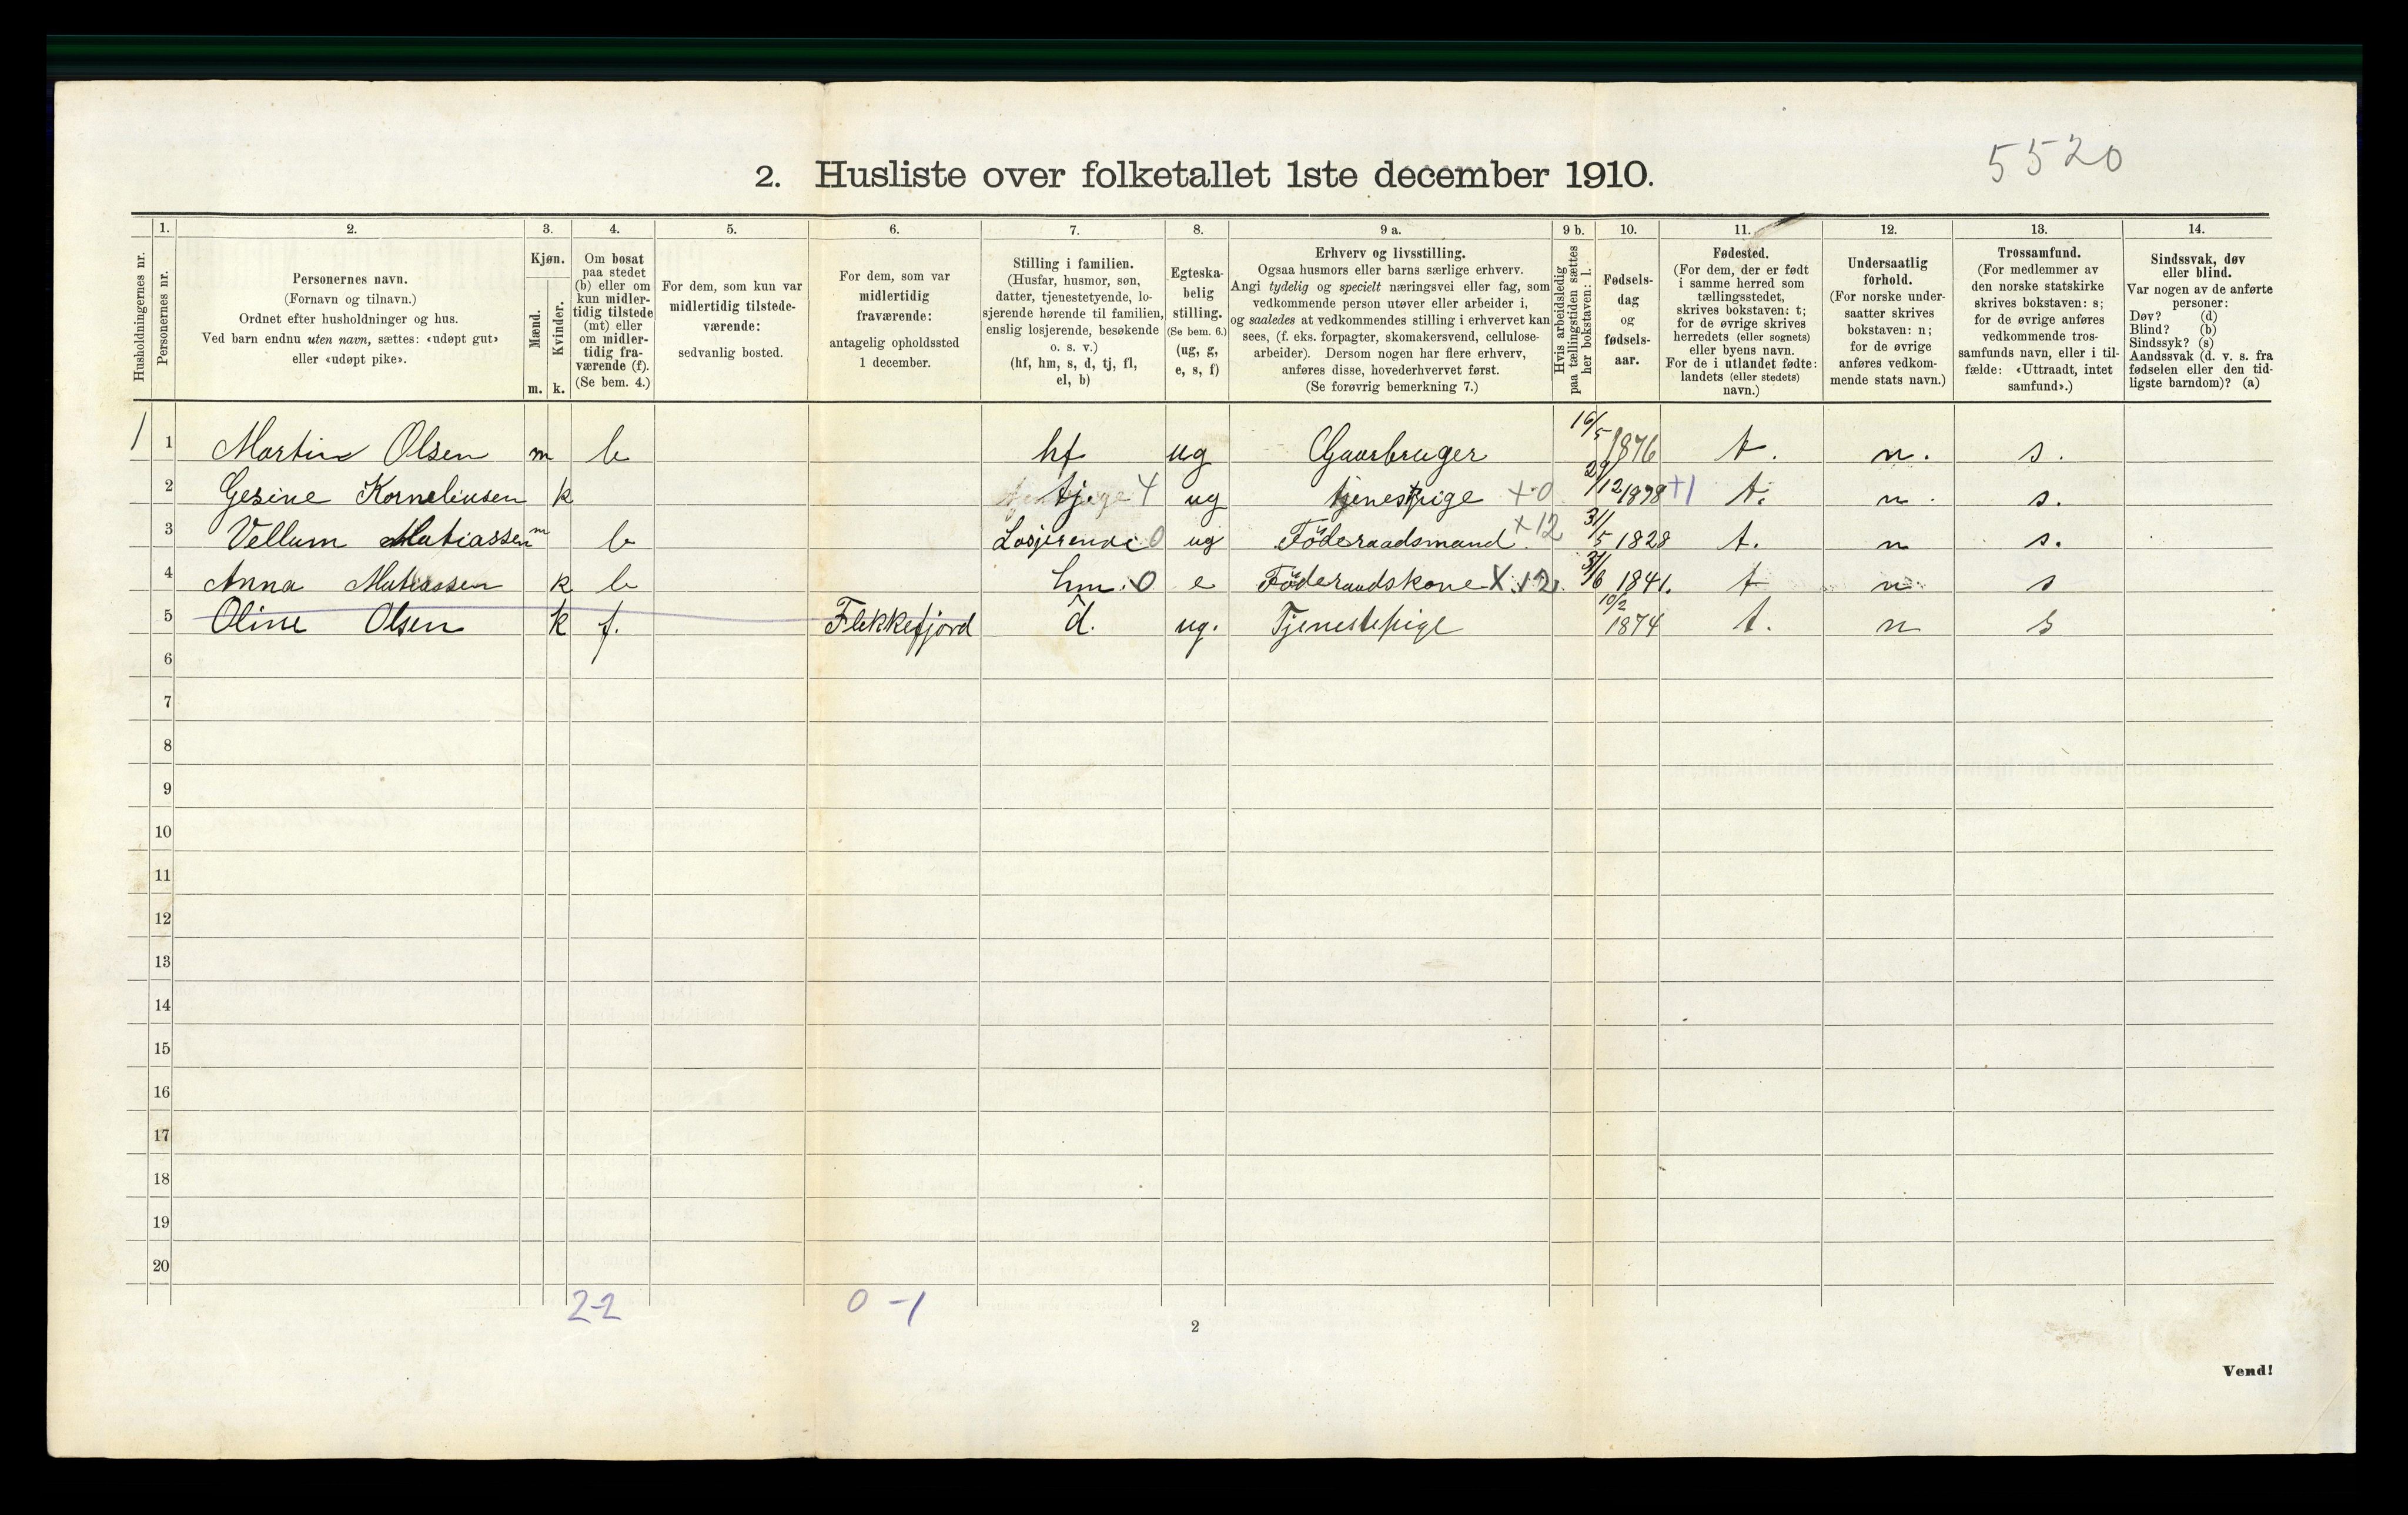 5520
2. Husliste over folketallet 1ste december 1910.
Husholdningernes nr.
1.
Personernes nr.
2.
Personernes navn.
(Fornavn og tilnavn.)
Ordnet efter husholdninger og hus.
Ved barn endnu uten navn, sættes: «udøpt gut»
eller «udøpt pike».
3.
Kjøn.
Mænd.
m.
Kvinder.
k.
4.
Om bosat
paa stedet
(b) eller om
kun midler-
tidig tilstede
(mt) eller
om midler-
tidig fra-
værende (f).
(Se bem. 4.)
5.
For dem, som kun var
midlertidig tilstede-
værende:
sedvanlig bosted.
6.
For dem, som var
midlertidig
fraværende:
antagelig opholdssted
1 december.
7.
Stilling i familien.
(Husfar, husmor, søn,
datter, tjenestetyende, lo-
sjerende hørende til familien,
enslig losjerende, besøkende
o. s. v.)
(hf, hm, s, d, tj, fl,
el, b)
8.
Egteska-
belig
stilling.
(Se bem. 6.)
(ug, g,
e, s, f)
9 a.
Erhverv og livsstilling.
Ogsaa husmors eller barns særlige erhverv.
Angi tydelig og specielt næringsvei eller fag, som
vedkommende person utøver eller arbeider i,
og saaledes at vedkommendes stilling i erhvervet kan
sees, (f. eks. forpagter, skomakersvend, cellulose-
arbeider). Dersom nogen har flere erhverv,
anføres disse, hovederhvervet først.
(Se forøvrig bemerkning 7.)
9 b.
Hvis arbeidsledig
paa tællingstiden sættes
her bokstaven: l.
10.
Fødsels-
dag
og
fødsels-
aar.
11.
Fødested.
(For dem, der er født
i samme herred som
tællingsstedet,
skrives bokstaven: t;
for de øvrige skrives
herredets (eller sognets)
eller byens navn.
For de i utlandet fødte:
landets (eller stedets)
navn.)
12.
Undersaatlig
forhold.
(For norske under-
saatter skrives
bokstaven: n;
for de øvrige
anføres vedkom-
mende stats navn.)
13.
Trossamfund.
(For medlemmer av
den norske statskirke
skrives bokstaven: s;
for de øvrige anføres
vedkommende tros-
samfunds navn, eller i til-
fælde: «Uttraadt, intet
samfund».)
14.
Sindssvak, døv
eller blind.
Var nogen av de anførte
personer:
Døv? (d)
Blind? (b)
Sindssyk? (s)
Aandssvak (d. v. s. fra
fødselen eller den tid-
ligste barndom)? (a)
1 1 Martin Olsen m b hf ug Gaarbruger 16/5 1876 t. n. s.
2 Gesine Korneliusen k tj 4 ug tjenestpige +0 29/12 1898 +1 t. n. s.
3 Vellum Matiassen m b Losjerende 0 ug Föderaadsmand +12 31/5 1828 t. n s.
4 Anna Matiassen k b hm. 0 e Föderaadskone X 12 31/6 1841. t n s
5 Oline Olsen k f. Flekkefjord d. ug. Tjenestepige 10/2 1874 t. n s
6
7
8
9
10
11
12
13
14
15
16
17
18
19
20
2-2 0-1
2
Vend!